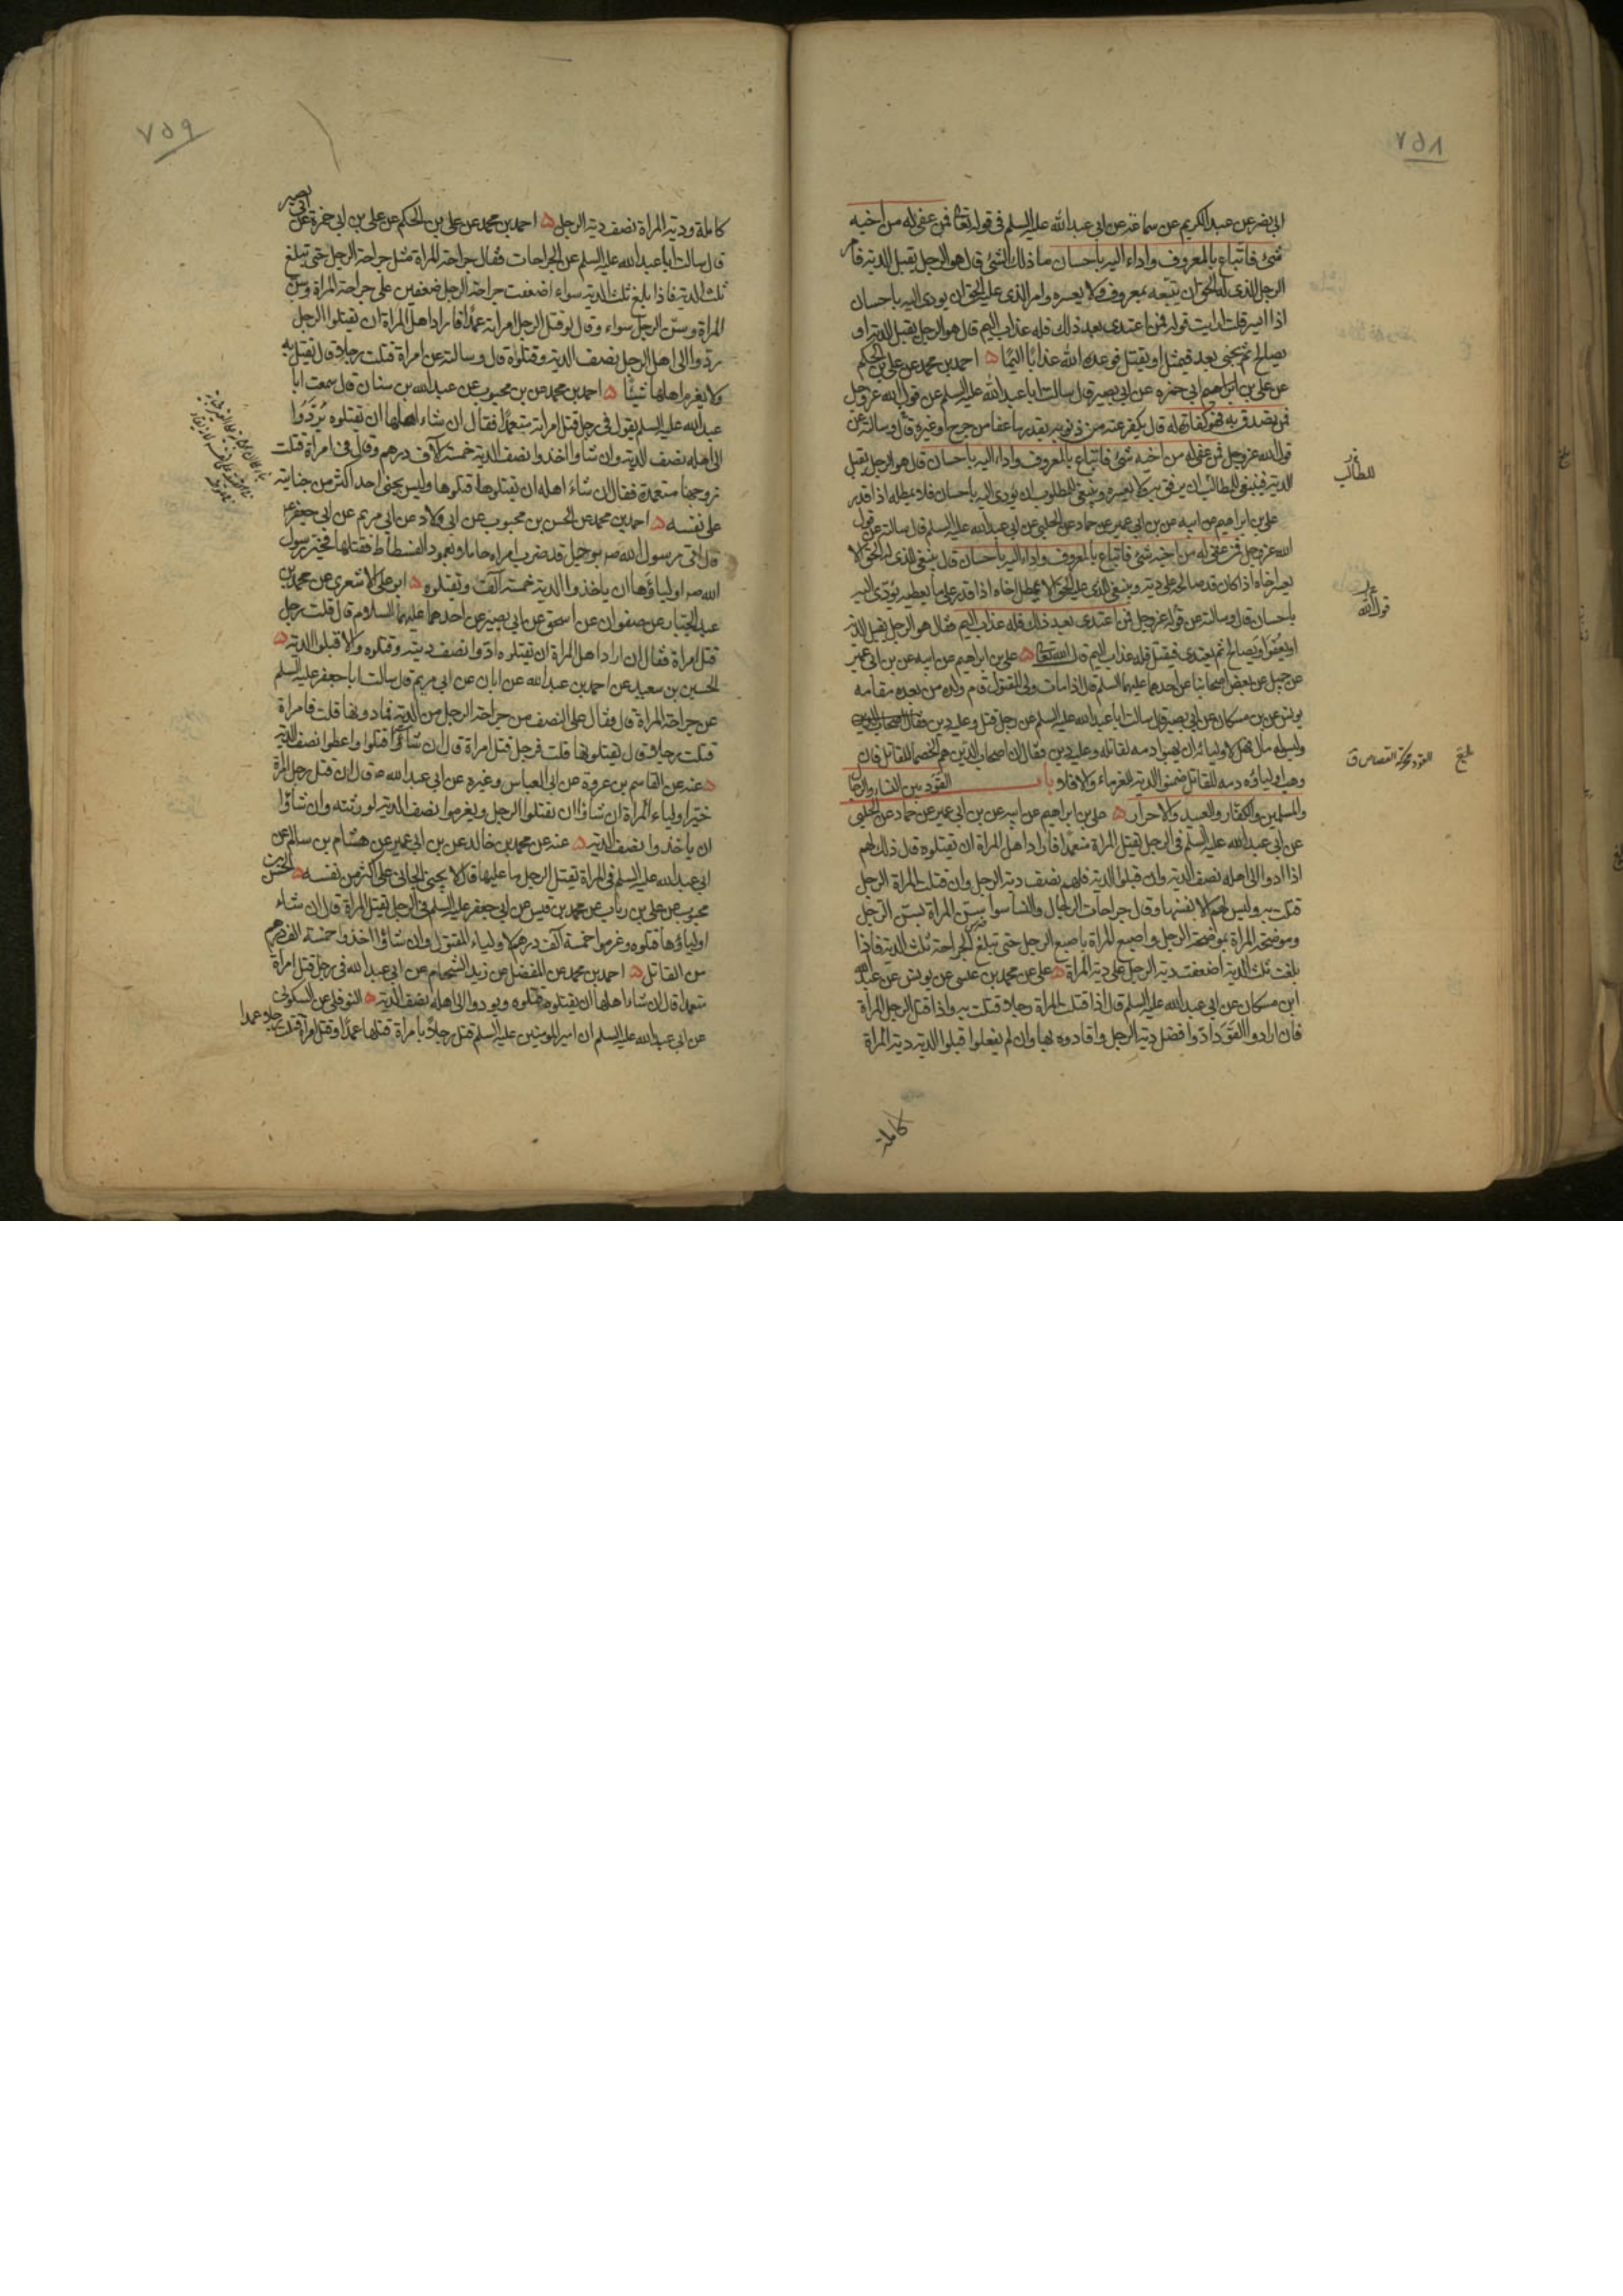 ٧٥٨
ابي نصر عن عبد الكريم عن سماعة عن ابي عبد الله عليه السلم في قوله تعا فمن عفى له من اخيه
شئ فاتباع بالمعروف واداء اليه باحسان ما ذلك الشئ قال هو الرجل يقبل الدية فامر
الرجل الذى له الحق ان يتبعه بمعروف ولا يعسره وامر الذى عليه الحق ان يودى اليه باحسان
اذا ايسر قلت ارايت قوله فمن اعتدى بعد ذلك فله عذاب اليم قال هو الرجل يقبل الدية او
يصالح ثم يجنى بعد فيمثل او يقتل فوعده الله عذابا اليما احمد بن محمد عن على بن الحكم
عن على بن ابي حمزه عن ابي بصير قال سالت ابا عبد الله عليه السلم عن قول الله عز وجل
فمن تصدق به فهو كفارة له قال يكفر عنه من ذنوبه بقدر ما عفا من جرح او غيره قال وسالته عن
قول الله عز وجل فمن عفى له من اخيه شئ فاتباع بالمعروف واداء اليه باحسان قال هو الرجل يقبل
الدية فينبغى للطالب ان يرفق به ولا يعسره وينبغى للمطلوب ان يؤدى اليه باحسان فلا يمطله اذا قدر
على بن ابراهيم عن ابيه عن بن ابي عمير عن حماد عن الحلبى عن ابي عبد الله عليه السلم قال سالته عن قول
الله عز وجل فمن عفى له من اخيه شئ فاتباع بالمعروف واداء اليه باحسان قال ينبغى للذى له الحق الا
يعسر اخاه اذا كان قد صالحه على دية وينبغى للذى عليه الحق الا يمطل اخاه اذا قدر على ما يعطيه ويؤدى اليه
باحسان قال وسالته عن قوله عز وجل فمن اعتدى بعد ذلك فله عذاب اليم فقال هو الرجل يقبل الدية
او يعفو او يصالح ثم يعتدى فيقتل فله عذاب اليم قال الله تعا على بن ابراهيم عن ابيه عن بن ابي عمير
عن جميل عن بعض اصحابنا عن احدهما عليهما السلم قال اذا مات ولى المقتول قام ولده من بعده مقامه
يونس عن بن مسكان عن ابي بصير قال سالت ابا عبد الله عليه السلم عن رجل قتل وعليه دين
وليس له مال فهل لاوليائه ان يهبوا دمه لقاتله وعليه دين فقال ان اصحاب الدين هم الخصما للقاتل فان
وهب اولياؤه دمه للقاتل ضمنوا الدية للغرماء والا فلا باب القود بين النساء والرجال
والمسلمين والكفار والعبيد والاحرار على بن ابراهيم عن ابيه عن بن ابي عمير عن حماد عن الحلبى
عن ابي عبد الله عليه السلم فى الرجل يقتل المراة متعمدا فاراد اهل المراة ان يقتلوه قال ذلك لهم
اذا ادوا الى اهله نصف الدية وان قبلوا الدية فلهم نصف دية الرجل وان قتلت المراة الرجل
قتلت به وليس لهم الا نفسها وقال جراحات الرجال والنسا سوا سن المراة بسن الرجل
وموضحة المراة بموضحة الرجل واصبع المراة باصبع الرجل حتى تبلغ الجراحة ثلث الدية فاذا
بلغت ثلث الدية اضعفت دية الرجل على دية المراة على عن محمد بن عيسى عن يونس عن عبد الله
ابن مسكان عن ابي عبد الله عليه السلم قال اذا قتلت المراة رجلا قتلت به واذا قتل الرجل المراة
فان ارادوا القود ادوا فضل دية الرجل واقادوه بها وان لم يفعلوا قبلوا الدية دية المراة
كاملة
للطالب
قول الله
القود محركة القصاص ق
بلغ
٧٥٩
كاملة ودية المراة نصف دية الرجل احمد بن محمد عن على بن الحكم عن على بن ابي حمزة عن ابي بصير
قال سالت ابا عبد الله عليه السلم عن الجراحات فقال جراحة المراة مثل جراحة الرجل حتى تبلغ
ثلث الدية فاذا بلغ ثلث الدية سواء اضعفت جراحة الرجل ضعفين على جراحة المراة وسن
المراة وسن الرجل سواء وقال لو قتل الرجل امراته عمدا فاراد اهل المراة ان يقتلوا الرجل
ردوا الى اهل الرجل نصف الدية وقتلوه قال وسالته عن امراة قتلت رجلا قال تقتل به
ولا يغرم اهلها شيئا احمد بن محمد عن بن محبوب عن عبد الله بن سنان قال سمعت ابا
عبد الله عليه السلم يقول فى رجل قتل امراته متعمدا فقال ان شاء اهلها ان يقتلوه يردوا
الى اهله نصف الدية وان شاوا اخذوا نصف الدية خمسة آلاف درهم وقال فى امراة قتلت
زوجها متعمدة فقال ان شاء اهله ان يقتلوها قتلوها وليس يجنى احد اكثر من جنايته
على نفسه احمد بن محمد عن الحسن بن محبوب عن ابي ولاد عن ابي مريم عن ابي جعفر ع
قال اتى رسول الله ص برجل قد ضرب امراه حاملا بعمود الفسطاط فقتلها فخير رسول
الله ص اولياؤها ان ياخذوا الدية خمسة آلاف وتقتلوه ابو على الاشعرى عن محمد بن
عبد الجبار عن صفوان عن اسحق عن ابي بصير عن احدهما عليهما السلام قال قلت رجل
قتل امراة فقال ان اراد اهل المراة ان يقتلوه ادوا نصف ديته وقتلوه والا قبلوا الدية
الحسين بن سعيد عن احمد بن عبد الله عن ابان عن ابي مريم قال سالت ابا جعفر عليه السلم
عن جراحة المراة قال فقال على النصف من جراحة الرجل من الدية فما دونها قلت فامراة
قتلت رجلا قال يقتلونها قلت فرجل قتل امراة قال ان شاؤا قتلوا واعطوا نصف الدية
عنه عن القاسم بن عروة عن ابي العباس وغيره عن ابي عبد الله ع قال ان قتل رجل امراة
خير اولياء المراة ان شاؤا ان يقتلوا الرجل ويغرموا نصف الدية لورثته وان شاؤا
ان ياخذوا نصف الدية عنه عن محمد بن خالد عن بن ابي عمير عن هشام بن سالم عن
ابي عبد الله عليه السلم فى المراة تقتل الرجل ما عليها قال لا يجنى الجانى على اكثر من نفسه الحسن بن
محبوب عن على بن رياب عن محمد بن قيس عن ابي جعفر عليه السلم فى الرجل يقتل المراة قال ان شاء
اولياؤها قتلوه وغرموا خمسة آلف درهم لاولياء المقتول وان شاؤا اخذوا خمسة الف درهم
من القاتل احمد بن محمد عن المفضل عن زيد الشحام عن ابي عبد الله فى رجل قتل امراة
متعمدا قال ان شاء اهلها ان يقتلوه قتلوه ويودوا الى اهله نصف الدية النوفلى عن السكونى
عن ابي عبد الله عليه السلم ان امير المومنين عليه السلم قتل رجلا بامراة قتلها عمدا وقتل امراة قتلت رجلا عمدا